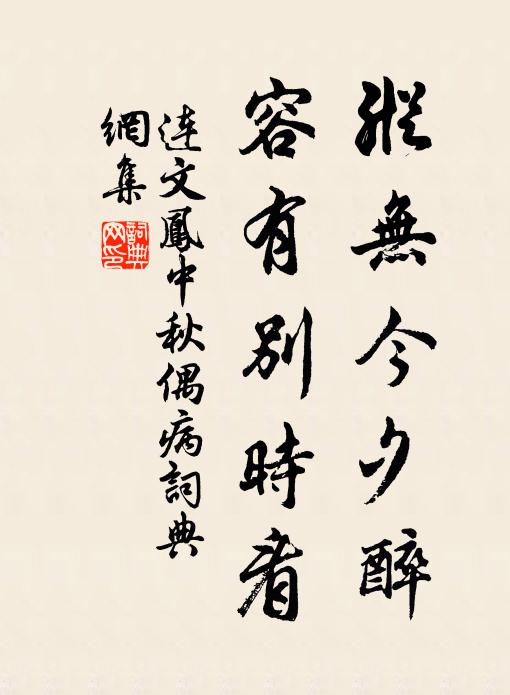 縱無今夕醉
容有別時看
連文鳳中秋偶病詞典
網集
詞典
网印